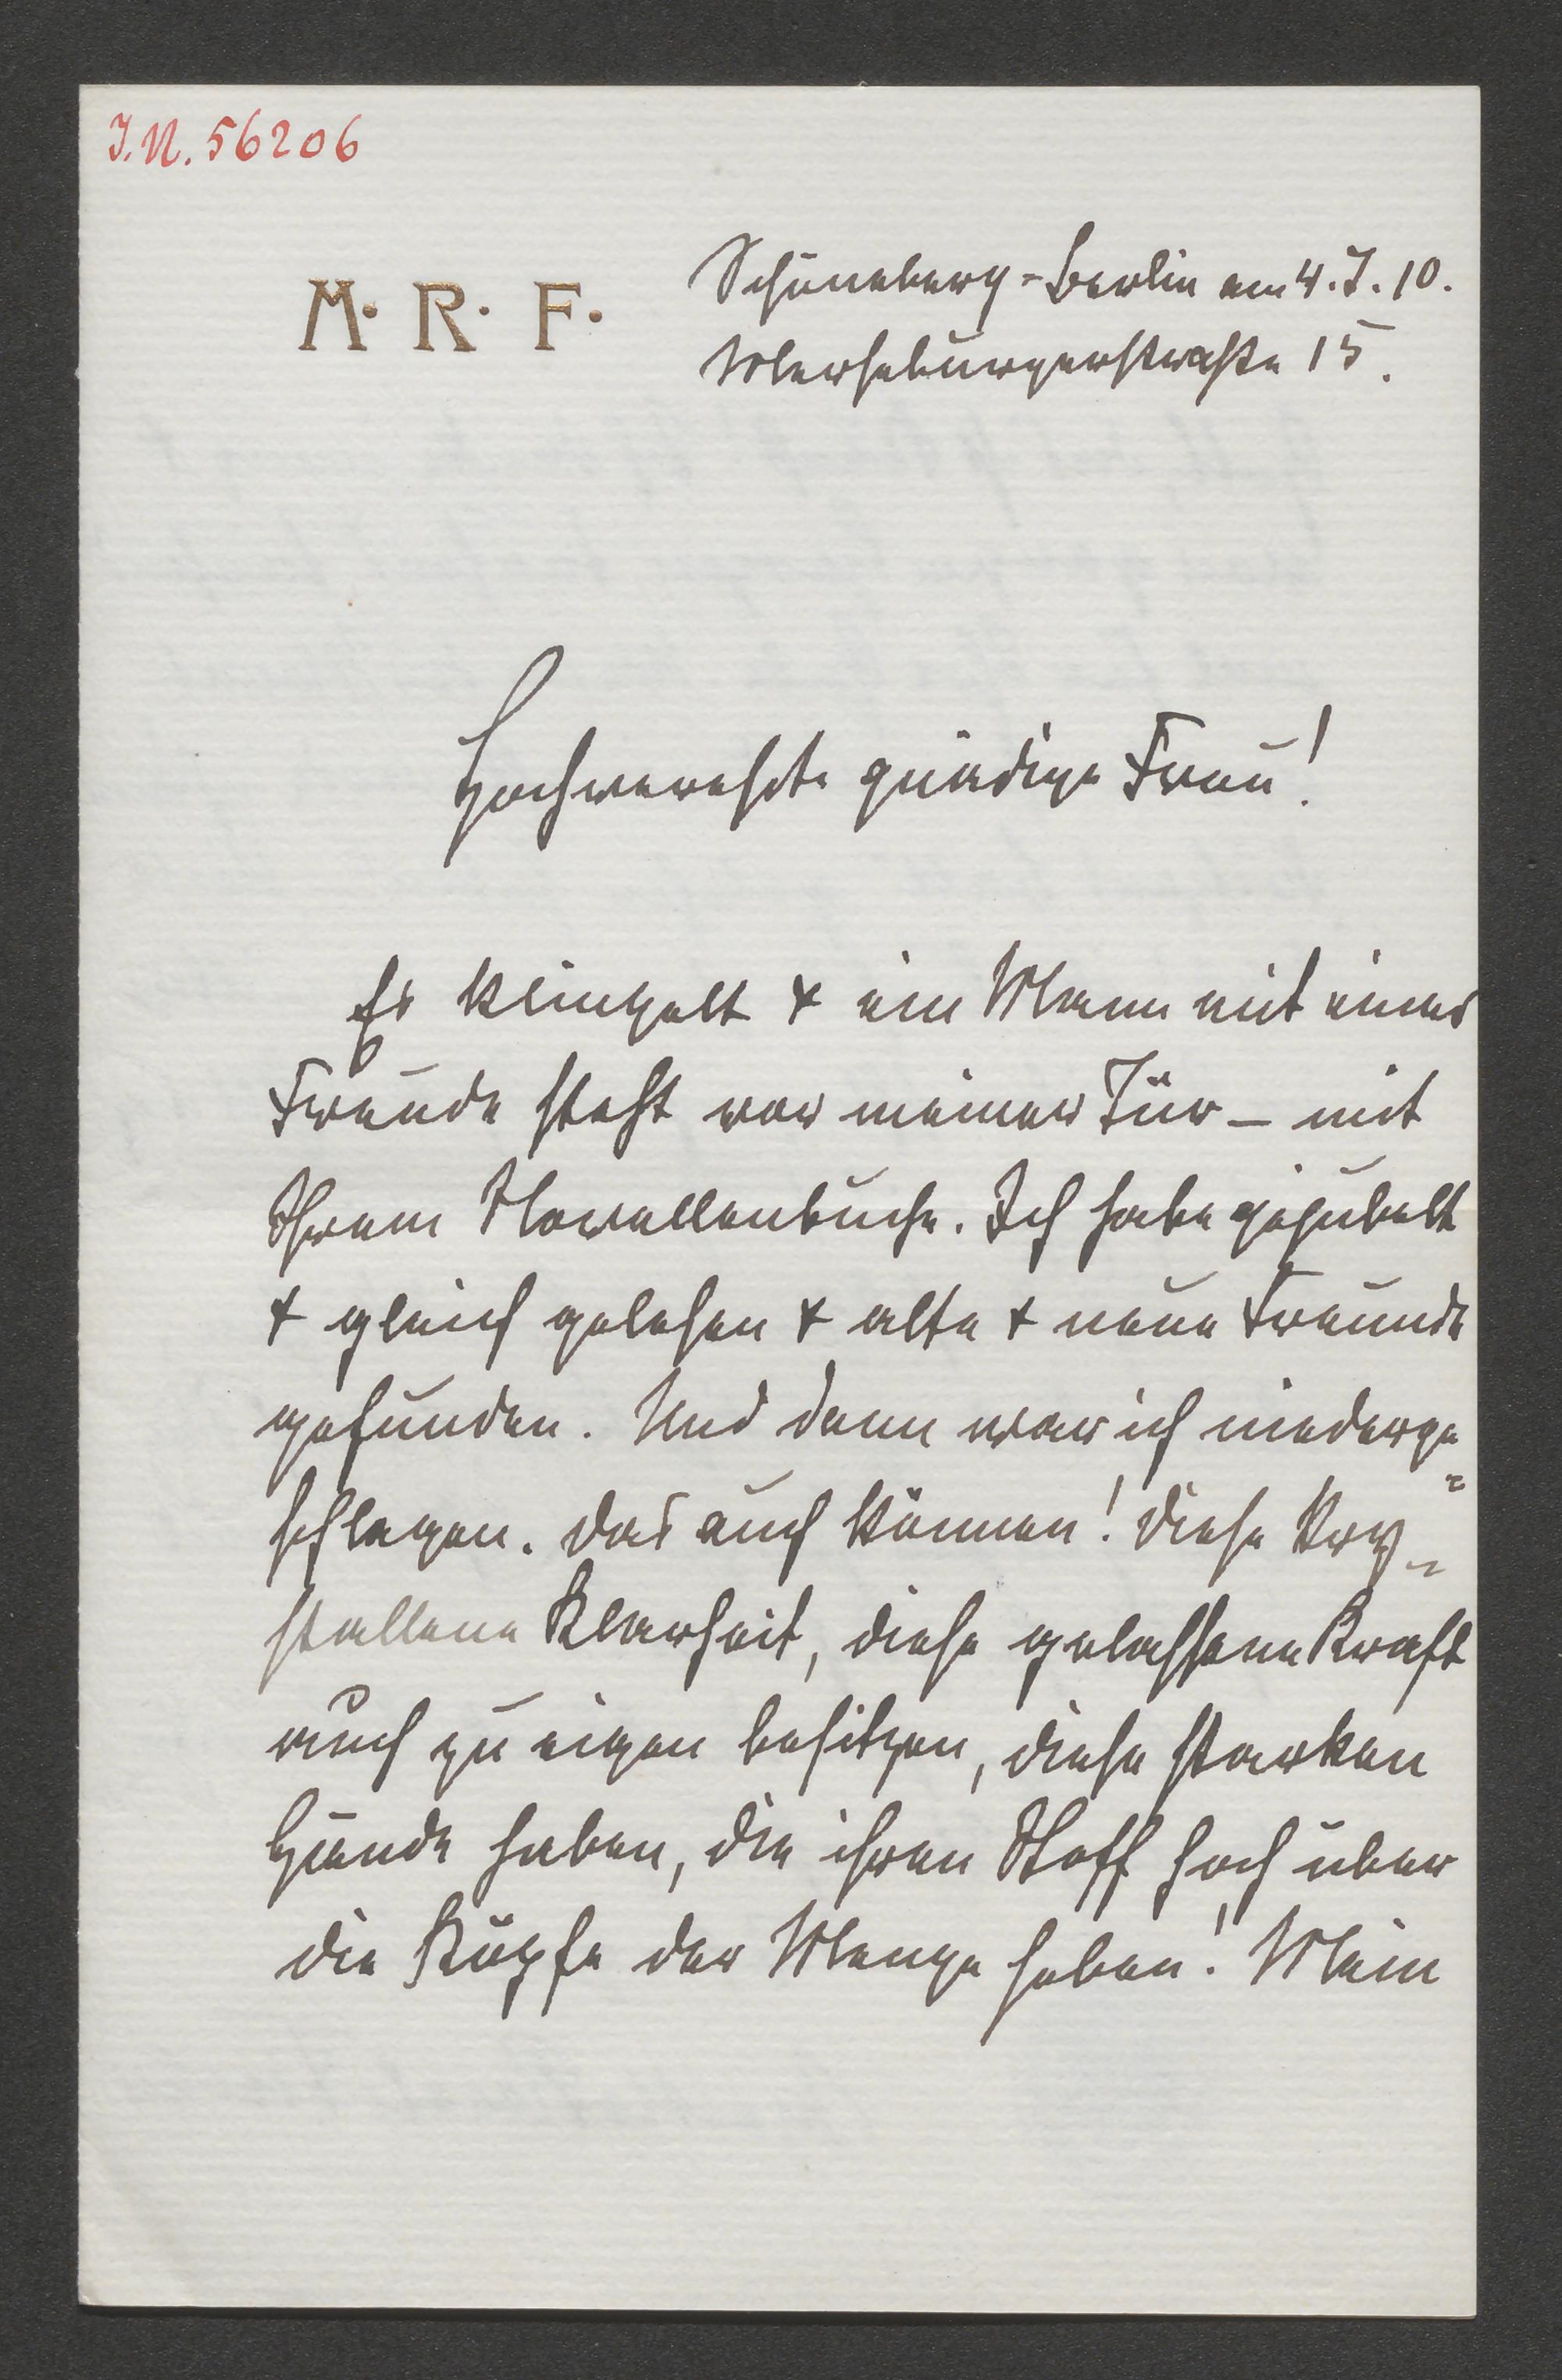 I.N. 56206
M. R. F.
Schöneberg-Berlin am 4.7.10.
Merseburgerstraße 15.
Hochverehrte gnädige Frau!
Es klingelt & ein Mann mit einer
Freude steht vor meiner Tür – mit
Ihrem Novellenbuche. Ich habe gejubelt
& gleich gelesen & alte & neue Freunde
gefunden. Und dann war ich niederge-
schlagen. Das auch können! Diese kry-
stallene Klarheit, diese gelassene Kraft
auch zu eigen besitzen, diese starken
Hände haben, die ihren Stoff hoch über
die Köpfe der Menge heben! Mein